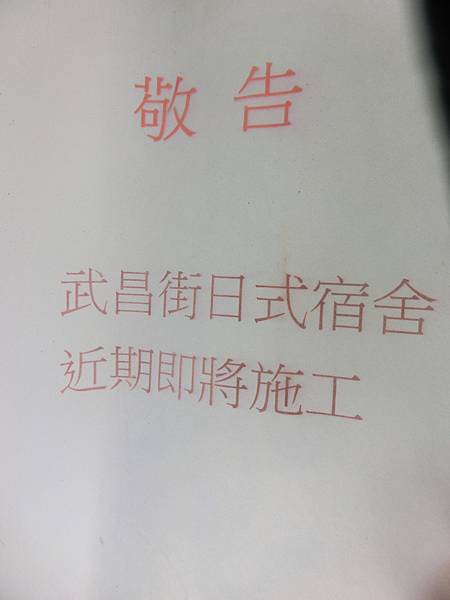 敬告
武昌街日式宿舍
近期即將施工